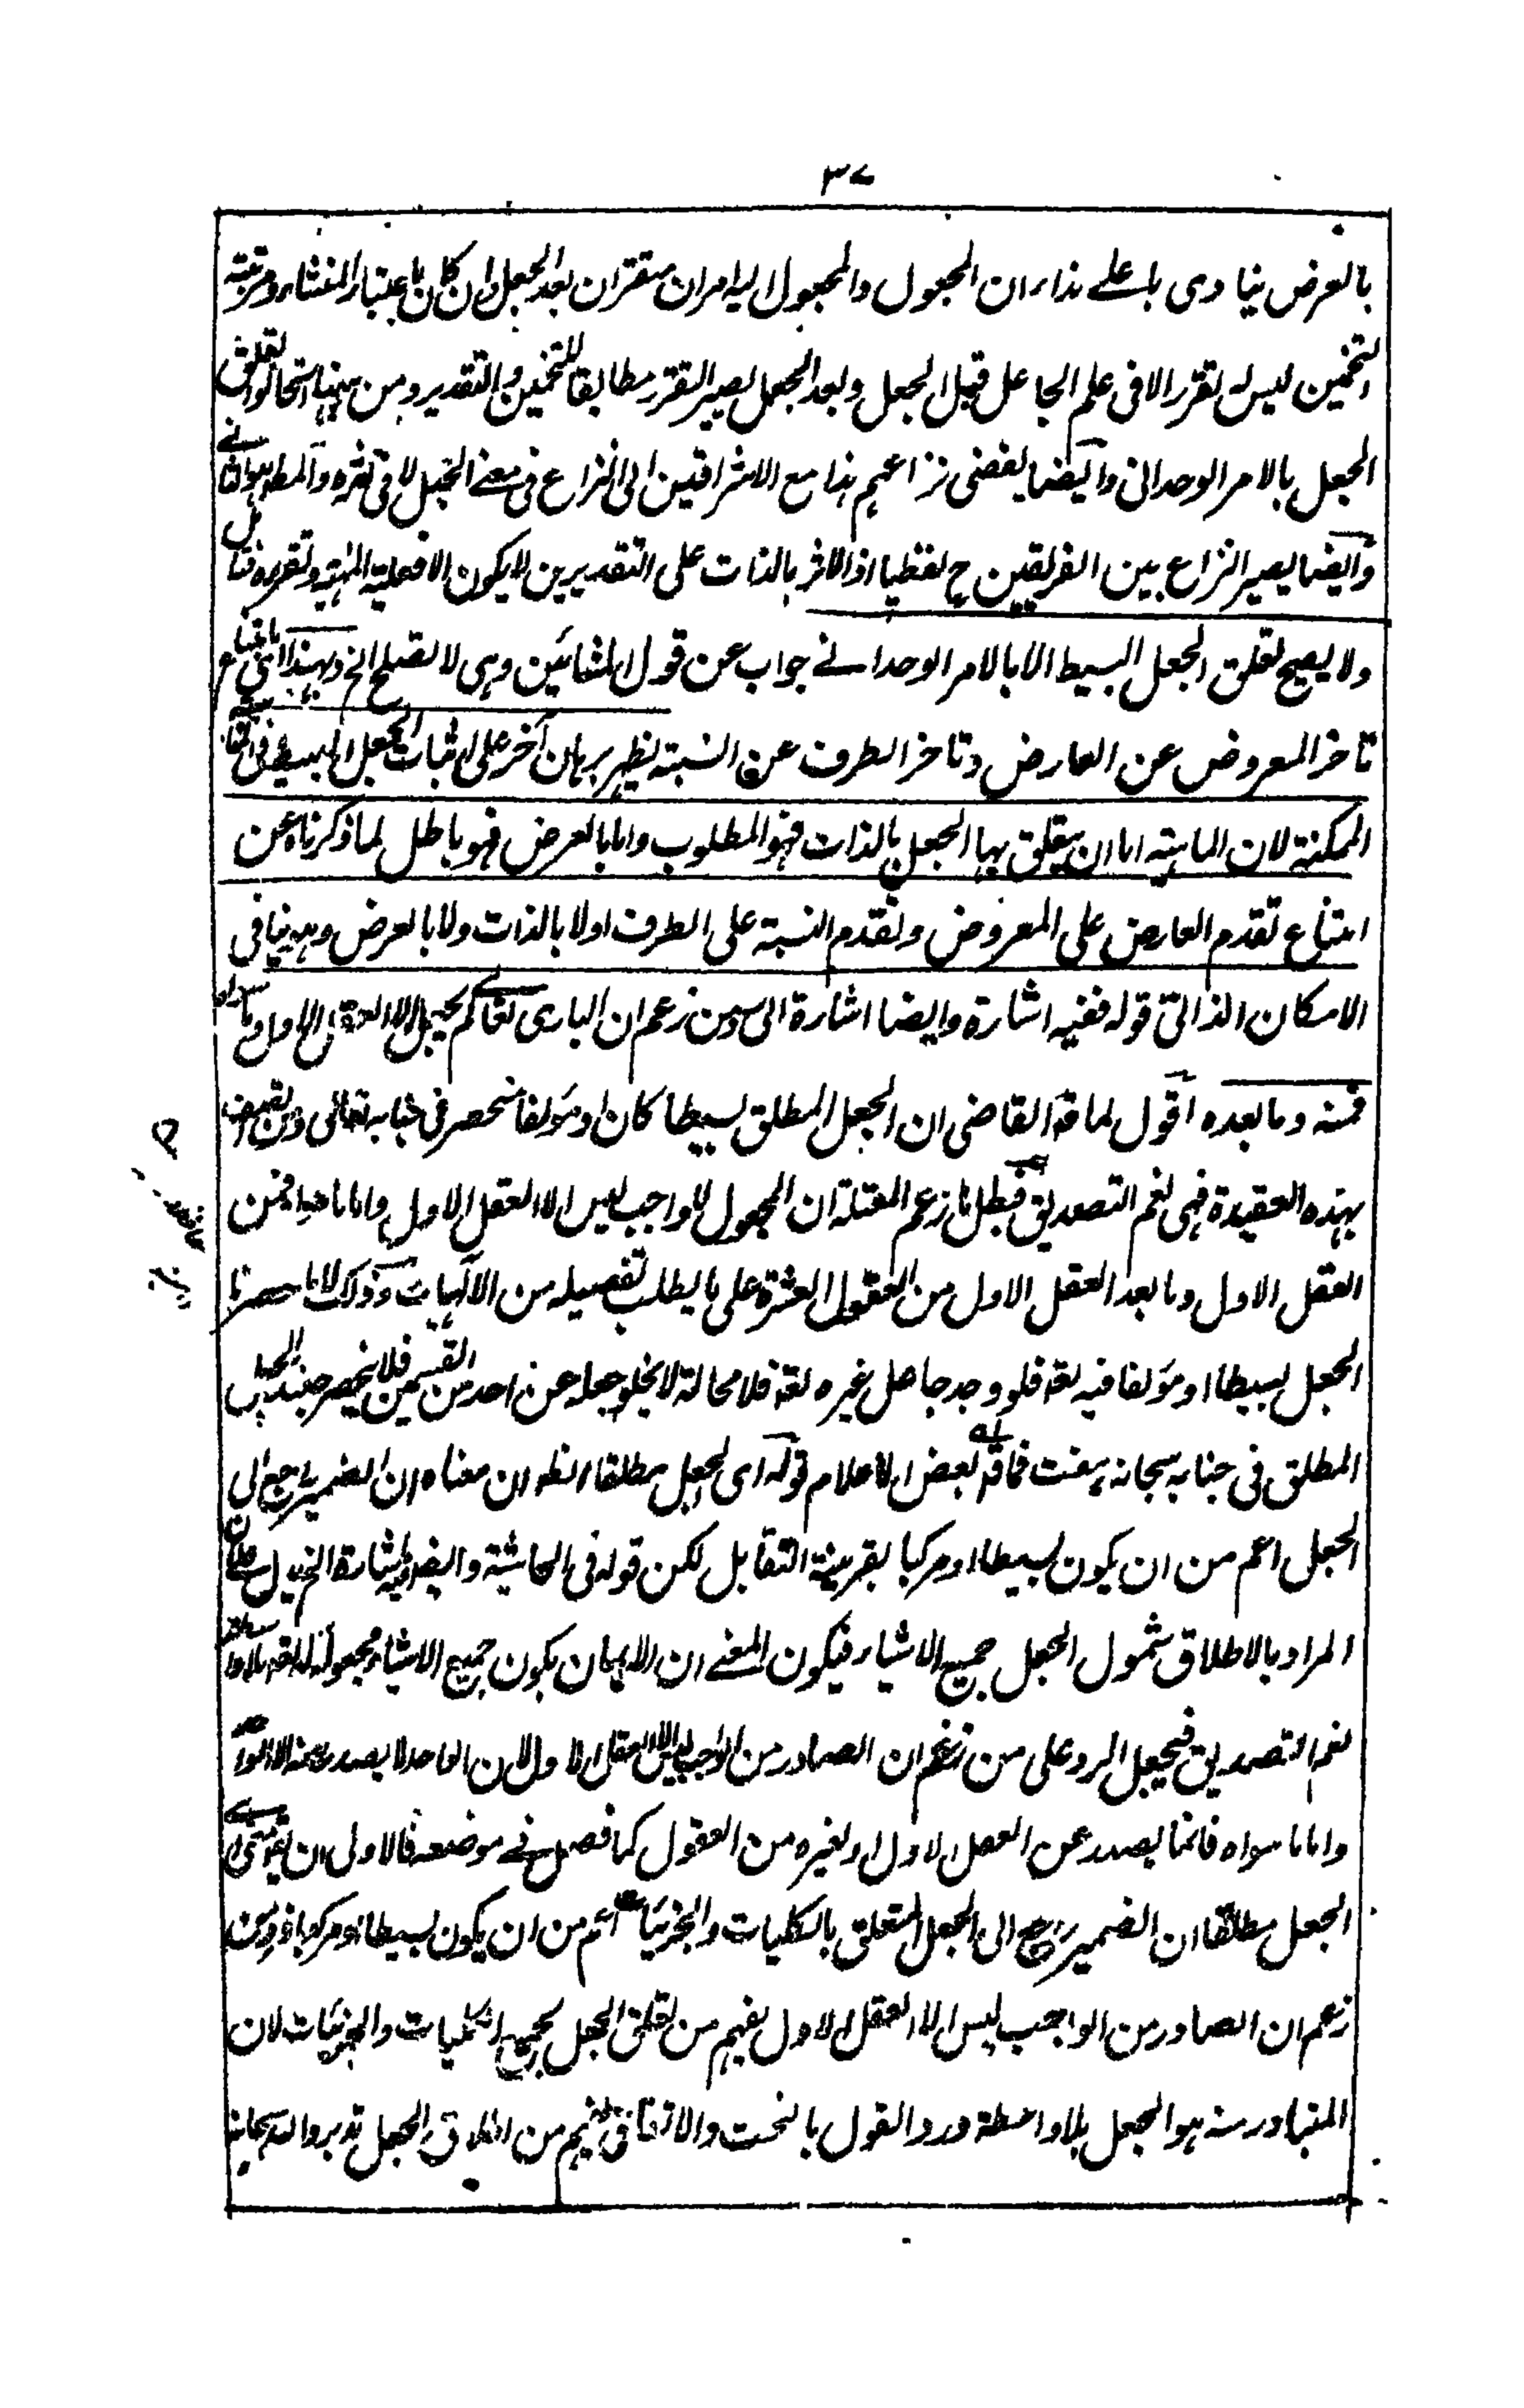 ٣٧
بالعرض ينادى باعلے نداء ان المجعول والمجعول اليه امران متقرران بعد الجعل وان كان باعتبار المنشاء ومرتبة
التخمين ليس له تقرر الا فى علم الجاعل قبل الجعل وبعد الجعل يصير التقرر مطابقا للتخمين والتقدير ومن ههنا استحالوا تعلق
الجعل بالامر الوحدانى وايضا يفضى نزاعهم هذا مع الاشراقيين الى النزاع فى معنے الجعل لا فى اثره والمطلوب هو الثانے
وايضا يصير النزاع بين الفريقين ح لفظيا اذ الاثر بالذات على التقديرين لا يكون الا فعلية الماهية وتقرره فتامل
ولا يصح تعلق الجعل البسيط الا بالامر الوحدانے جواب عن قول المشائين وهى لا تصلح الخ وبهذا اى بامتناع
تاخر المعروض عن العارض وتاخر الطرف عن النسبة يظهر برهان آخر على اثبات الجعل البسيط فى
الممكنة لان الماهية اما ان يتعلق بها الجعل بالذات فهو المطلوب واما بالعرض فهو باطل لما ذكرناه عن
امتناع تقدم العارض على المعروض وتقدم النسبة على الطرف او لا بالذات ولا بالعرض وهو ينافى
الامكان الذاتى قوله ففيه اشارة وايضا اشارة الى رد من زعم ان البارى تعالى لم يجعل الا العقل الاول واما ما سواه
فمنه وما بعده اقول لما قال القاضى ان الجعل المطلق بسيطا كان او مؤلفا منحصر فى جنابه تعالى وان التصديق
بهذه العقيدة فهى نعم التصديق فبطل ما زعم المعتزلة ان المجعول للواجب ليس الا العقل الاول واما ما عداه فمن
العقل الاول وما بعد العقل الاول من العقول العشرة على ما يطلب تفصيله من الالهيات وذلك لانا حصرنا
الجعل بسيطا او مؤلفا فيه تعه فلو وجد جاعل غيره تعه فلا محالة لا يخلو جعله عن احد من القسمين فلا ينحصر حينئذ الجعل
المطلق فى جنابه سبحانه هف فما قال بعض الاعلام قوله اى الجعل مطلقا الظ ان معناه ان الضمير راجع الى
الجعل اعم من ان يكون بسيطا او مركبا بقرينة التقابل لكن قوله فى الحاشية وايضا فيه اشارة الخ يدل على ان
المراد بالاطلاق شمول الجعل جميع الاشياء فيكون المعنے ان الايمان بكون جميع الاشياء مجعولة له تعه بلا واسطة
نعم التصديق فيحصل الرد على من زعم ان الصادر من الواجب ليس الا العقل الاول لان الواحد لا يصدر عنه الا الواحد
واما ما سواه فانما يصدر عن العقل الاول او لغيره من العقول كما فصل فے موضعه فالاولى ان يقول معنى اى
الجعل مطلقا ان الضمير راجع الى الجعل المتعلق بالكليات والجزئيات اعم من ان يكون بسيطا او مركبا فرد من
زعم ان الصادر من الواجب ليس الا العقل الاول يفهم من تعلق الجعل بجميع الكليات والجزئيات لان
المتبادر منه هو الجعل بلا واسطة ورد القول بالبخت والاتفاق يفهم من اطلاق الجعل تدبر والله سبحانه